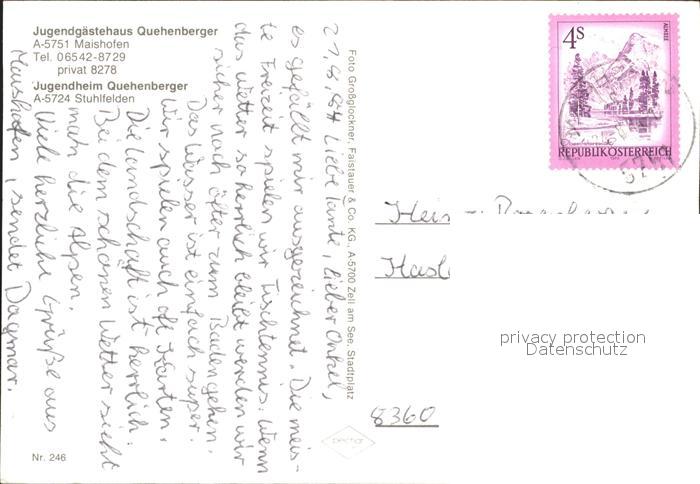 Jugendgästehaus Quehenberger
A-5751 Maishofen
Tel. 06542-8729
privat 8278
Jugendheim Quehenberger
A-5724 Stuhlfelden
21.8.84 Liebe Tante, lieber Onkel,
es gefällt mir ausgezeichnet. Die meis-
te Freizeit spielen wir Tischtennis. Wenn
das Wetter so herrlich bleibt werden wir
sicher noch öfter zum Baden gehen.
Das Wasser ist einfach super.
Wir spielen auch oft Karten.
Die Landschaft ist herrlich.
Bei dem schönen Wetter sieht
man die Alpen.
Viele herzliche Grüße aus
Maishofen, sendet Dagmar.
Nr. 246
Foto Großglockner, Falstauer & Co. KG A-5700 Zell am See, Stadtplatz
4S
ALMSEE
REPUBLIK ÖSTERREICH
8360
privacy protection
Datenschutz